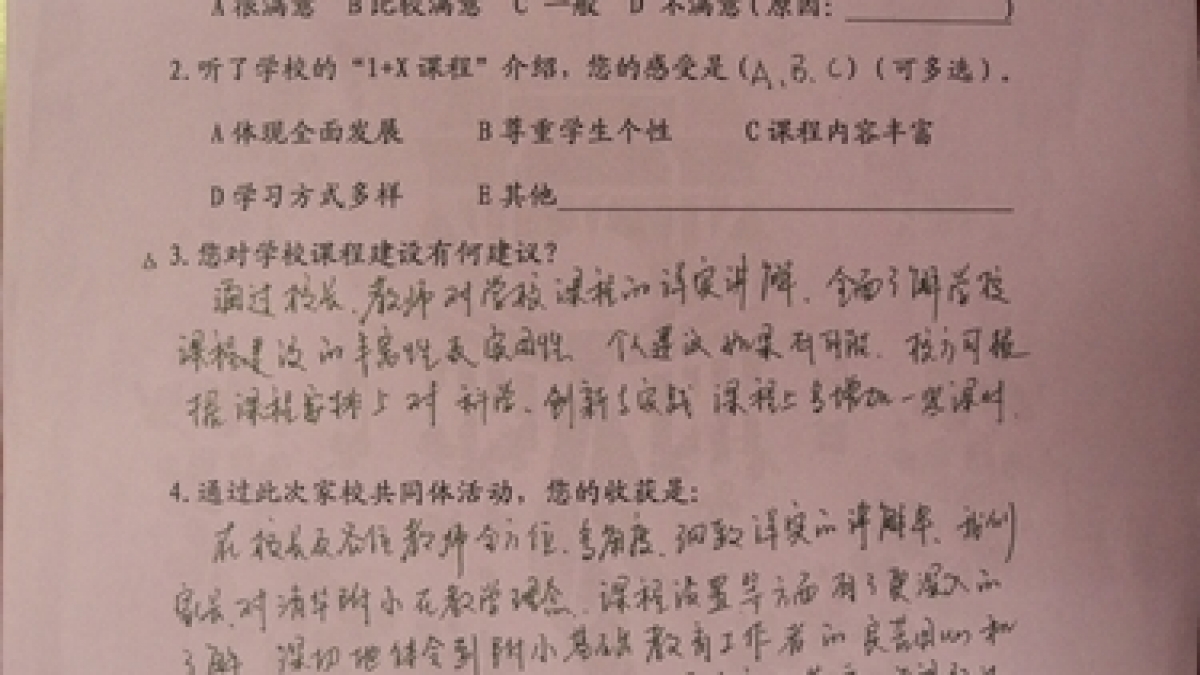 A 很满意 B 比较满意 C 一般 D 不满意(原因:________)
2.听了学校的“1+X 课程”介绍,您的感受是(A、B、C)(可多选).
A 体现全面发展 B 尊重学生个性 C 课程内容丰富
D 学习方式多样 E 其他________
△ 3.您对学校课程建设有何建议?
通过校长、教师对学校课程的详实讲解、全面了解学校
课程建设的丰富性及实用性 个人建议如果有可能、校方可根
据课程安排上对科学、创新与实践课程上多增加一些课时.
4.通过此次家校共同体活动,您的收获是:
在校长及各位教师全方位、多角度、细致详实的讲解中、我们
家长对清华附小在教学理念、课程设置等方面有了更深入的
了解 深切地体会到附小基础教育工作者的 和